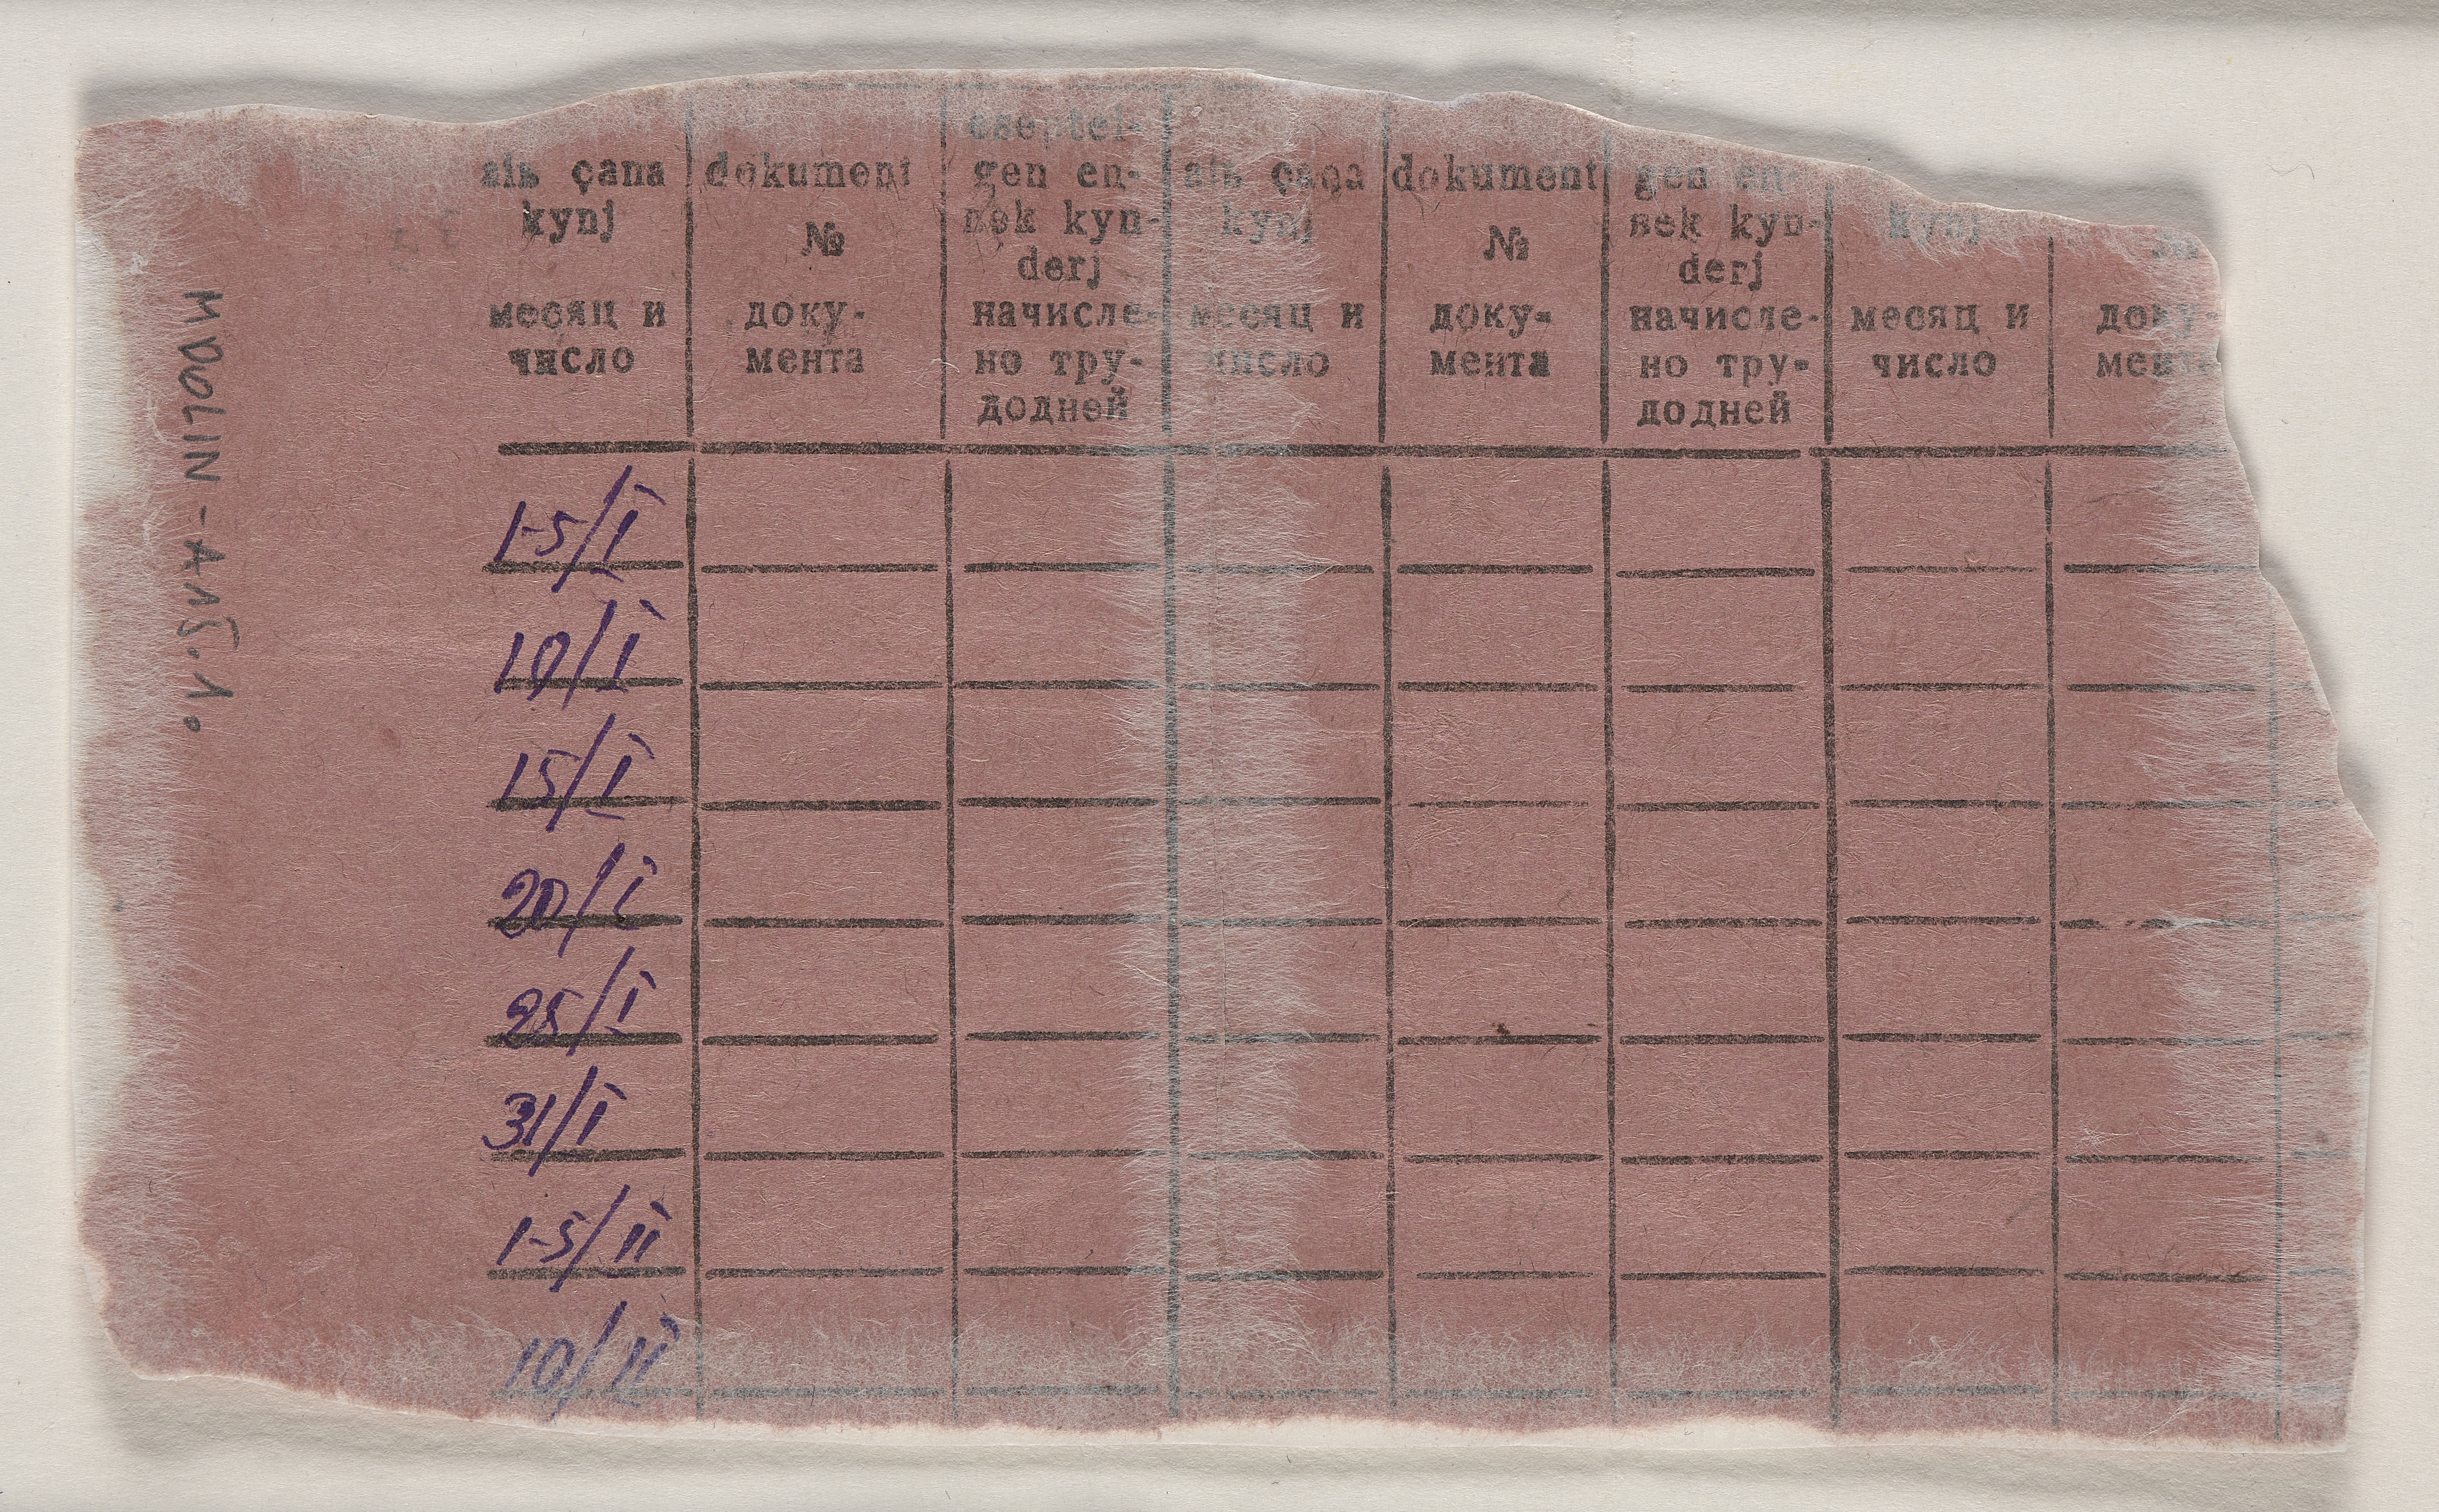 MDOLIN - A
aiь çana
kynj
месяц и
число
dokument
№
доку-
мента
eseptel-
gen en-
bek kyn-
derj
начисле-
но тру-
додней
aiь çana
kynj
месяц и
число
dokument
№
доку-
мента
gen en-
bek kyn-
derj
начисле-
но тру-
додней
kynj
месяц и
число
№
доку-
мента
1-5/I
10/I
15/I
20/I
25/I
31/I
1-5/II
10/II